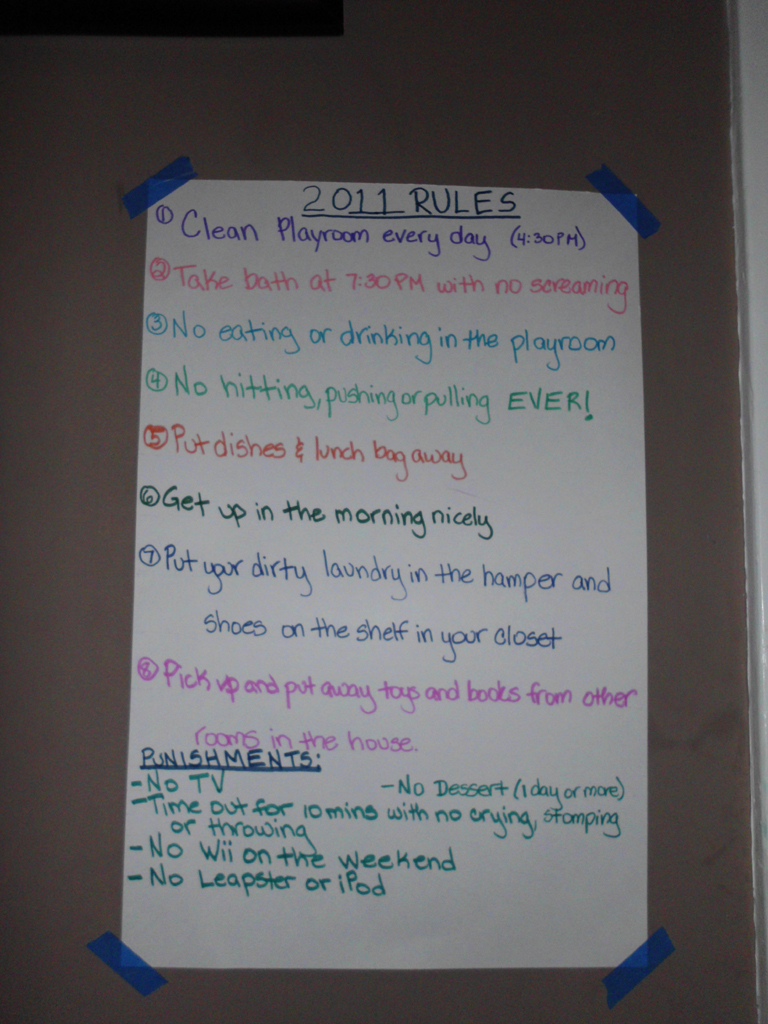 2011 RULES
① Clean Playroom every day (4:30PM)
② Take bath at 7:30PM with no screaming
③ No eating or drinking in the playroom
④ No hitting, pushing or pulling EVER!
⑤ Put dishes & lunch bag away
⑥ Get up in the morning nicely
⑦ Put your dirty laundry in the hamper and
shoes on the shelf in your closet
⑧ Pick up and put away toys and books from other
rooms in the house.
PUNISHMENTS:
- No TV - No Dessert (1 day or more)
- Time out for 10 mins with no crying, stomping
or throwing
- No Wii on the weekend
- No Leapster or iPod